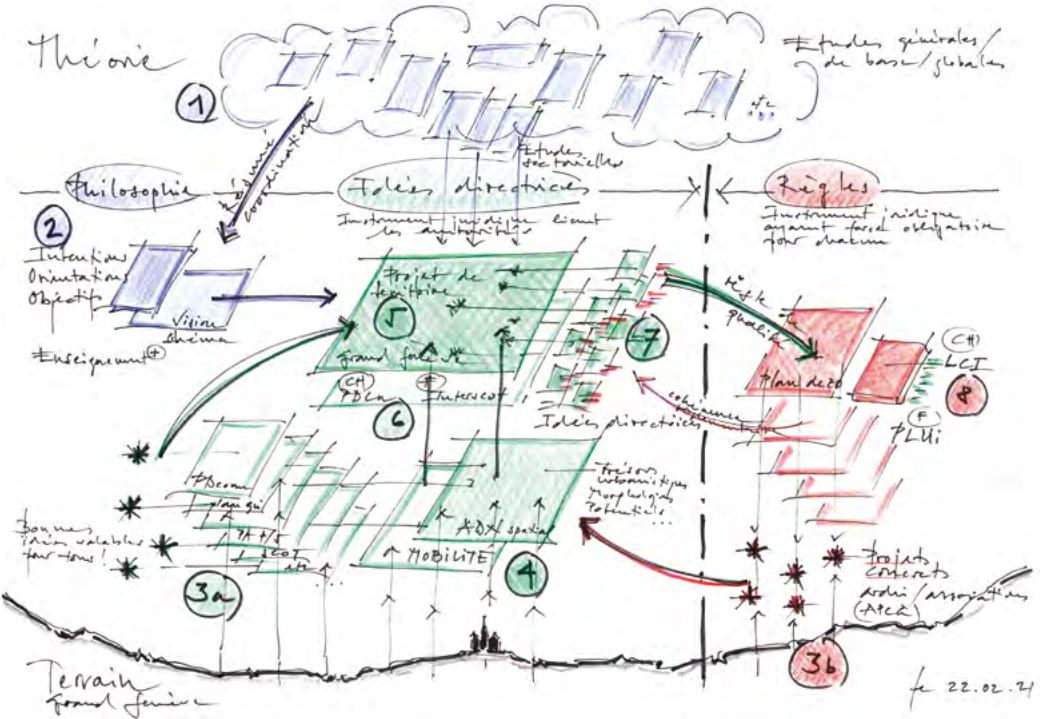 Théorie
Etudes générales/
de base/globales
1
etc
Etudes
sectorielles
Résumé
coordination
Philosophie
Idées directrices
Règles
Instrument juridique liant
les autorités
Instrument juridique
ayant force obligatoire
pour chacun
2
Intentions
Orientations
Objectifs
Vision
schéma
Enseignement +
Projet de
territoire
5
grand
CH
PDCn
F
Interscot
6
7
Idées directrices
règle
qualité
Plan de zo
CH
LCI
8
F
PLUi
cohérence
PDcom
plan qu
PA
SCOT
etc
...
Bonnes
idées valables
pour tous!
3a
MOBILITÉ
ADN spatial
4
Trésors
urbanistiques
Morphologies
Potentiels
...
Projets
concrets
/associations
3b
Terrain
Grand Genève
fe 22.02.21